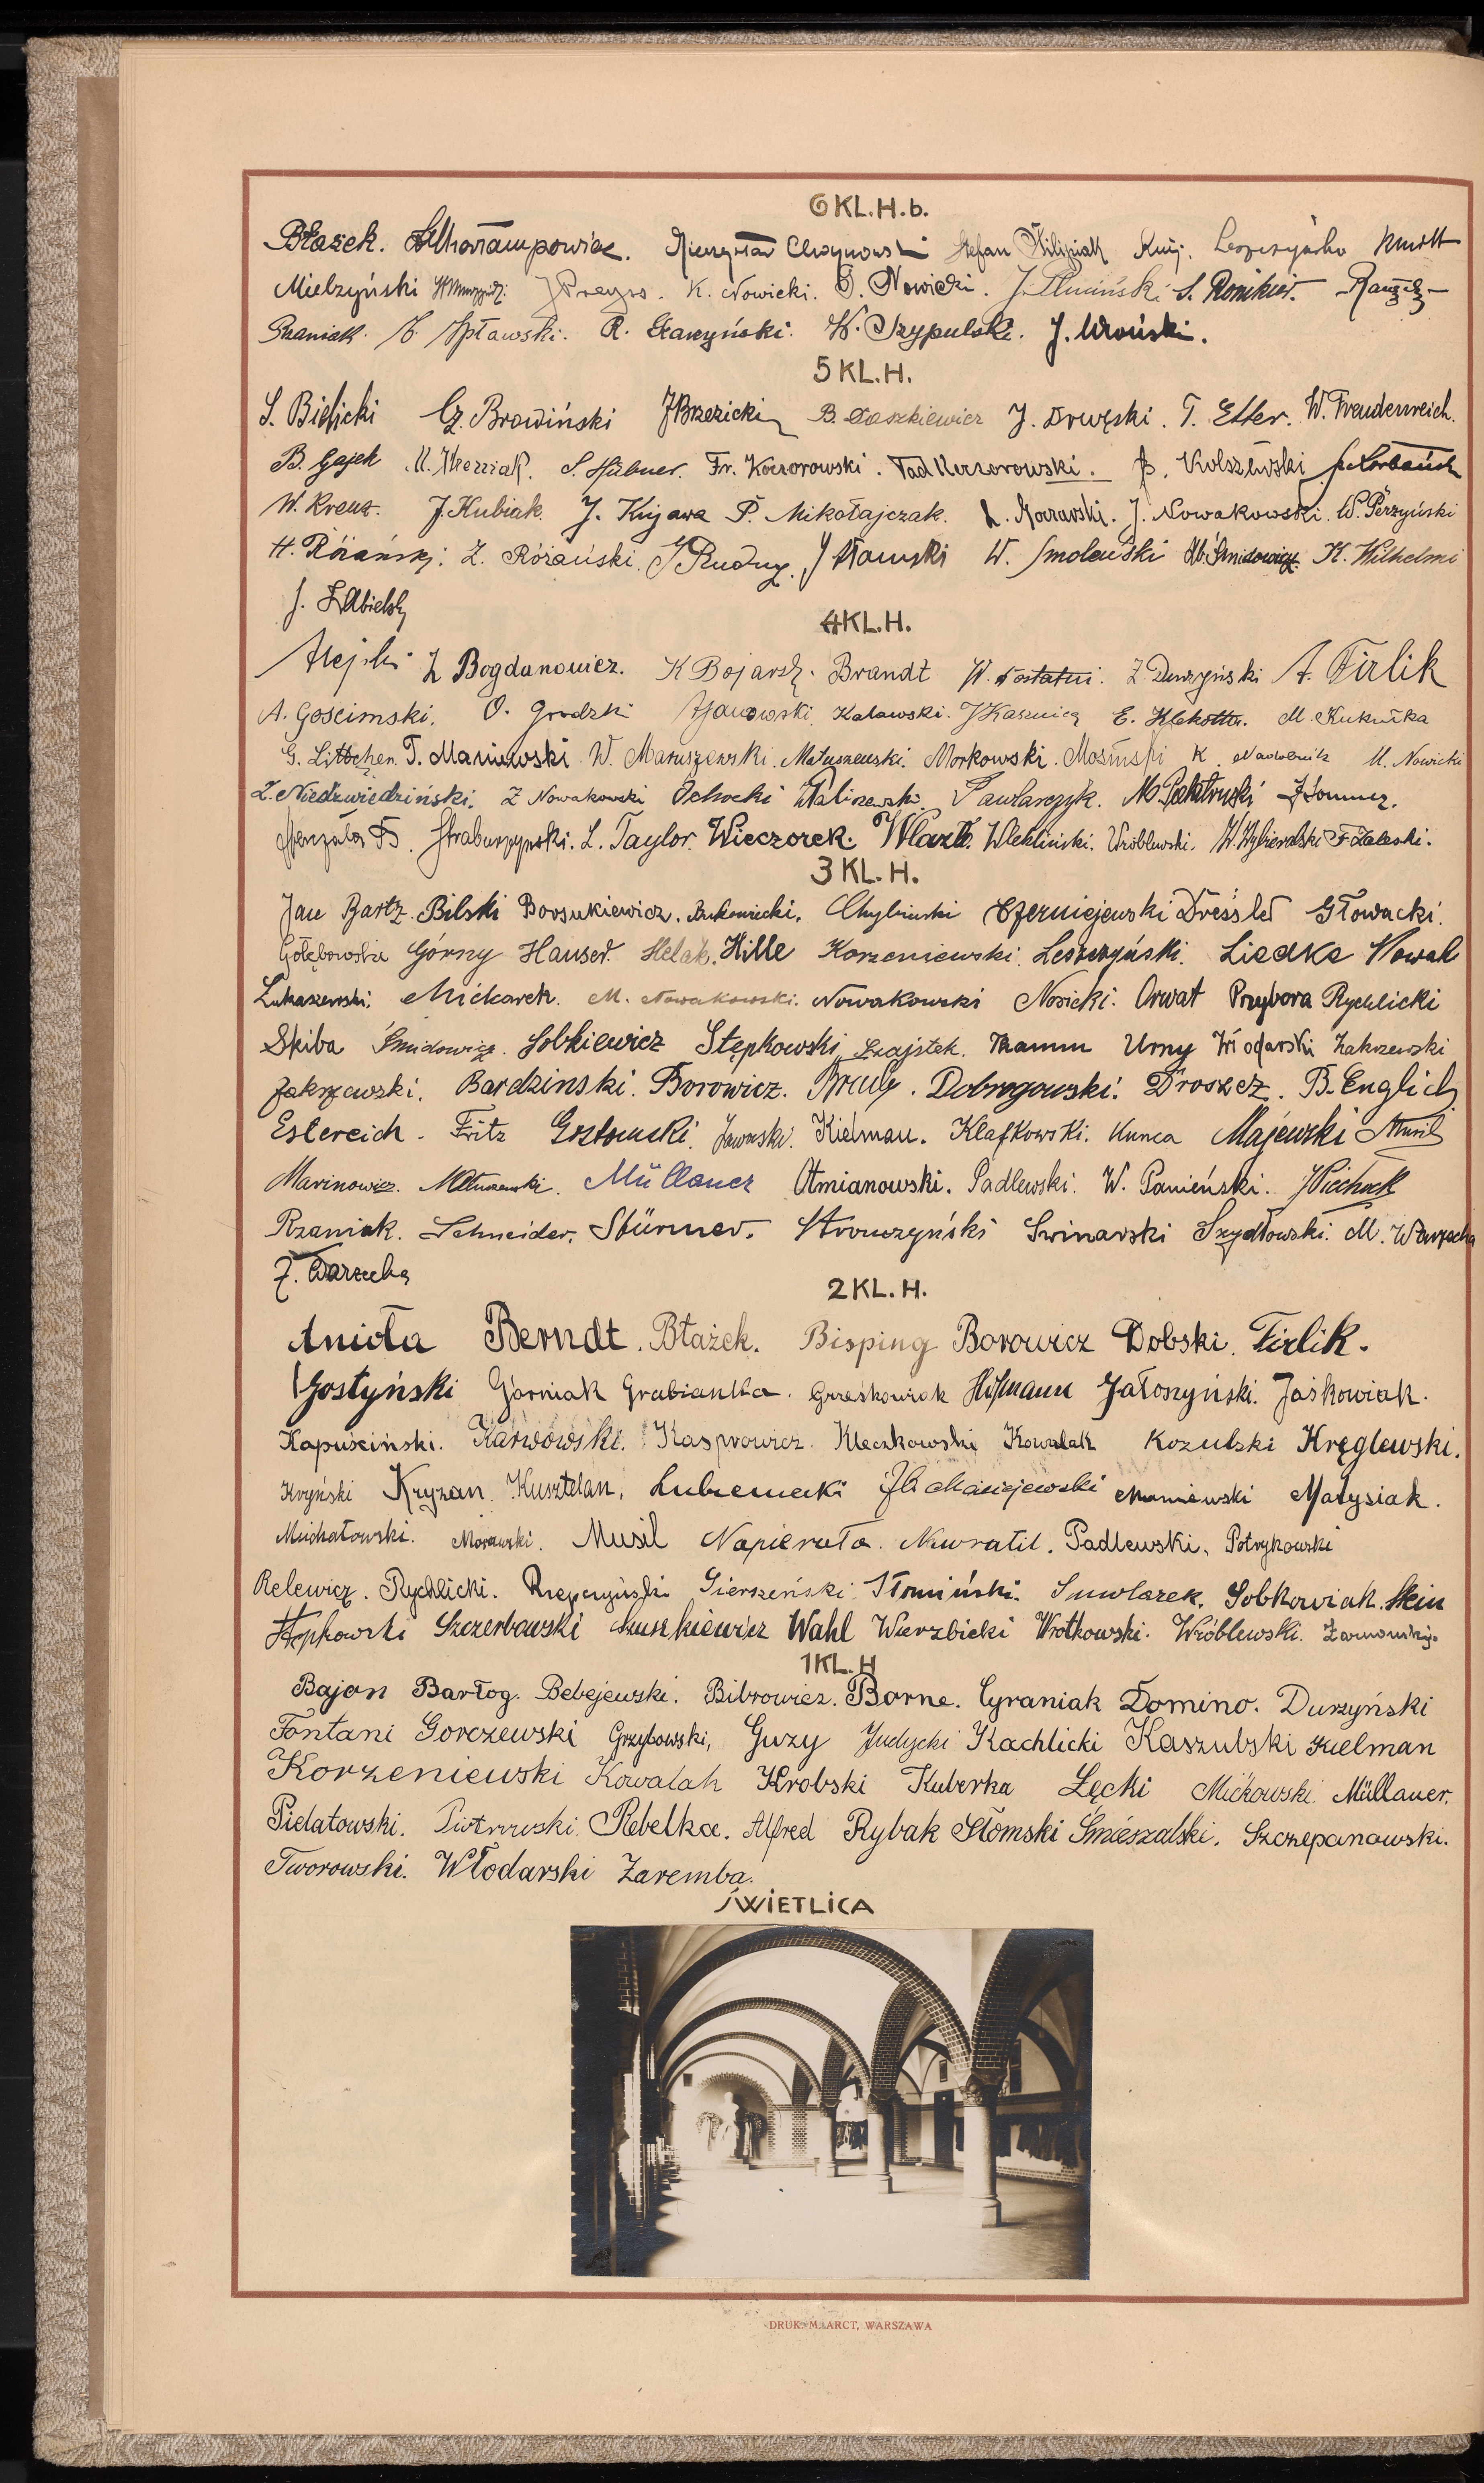 6 KL. H. b.
Błażek. Charłampowicz. Mieczysław Chojnowski Stefan Filipiak
Mielzyński K. Nowicki. O. Nowicki. J. Pluciński S. Ronikier.
Rzaniak. Spławski. R. Starzyński. W. Szypulski. J. Wroński.
5 KL. H.
S. Bielicki Cz. Browiński J Brzezicki B. Daszkiewicz J. Drwęski. T. Etter. W. Freudenreich.
B. Gajek S. Hübner. Fr. Koczorowski. Tad Koczorowski.
W. Kreuz. J. Kubiak. J. Kujawa P. Mikołajczak. J. Nowakowski. W. Perzyński
H. Różański. Z. Różański. J Rudny. W. Smoleński Śmidowicz K. Wilhelmi
J. Zabielski
4 KL. H.
Alejski Z Bogdanowicz. K Bojarski. Brandt Z Durzyński A. Firlik
A. Gościmski. O. Grodzki Janowski Kalawski. J Kasznica E. Klekotta. M. Kukułka
G. Littschen. T. Maniewski W. Maruszewski. Matuszewski. Morkowski. K. Nadolnik M. Nowicki
Z. Niedzwiedziński. Z Nowakowski Ochocki Paliszewski Pawlarczyk.
Straburzyński. L. Taylor. Wieczorek. Wlazło. Wlekliński. Wróblewski. W. Wybieralski F Zaleski.
3 KL. H.
Jan Bartz. Bilski Borsukiewicz. Bukowiecki. Chybiński Czerniejewski Dressler Głowacki.
Gołębowski Górny Hauser. Helak. Hille Korzeniewski. Leszczyński. Liedke Nowak
Łukaszewski. Mićkarek. M. Nowakowski. Nowakowski Nosicki. Orwat Przybora Rychlicki
Skiba Śmidowicz. Sobkiewicz Stępkowski Szajstek. Thamm Urny Włodarski Zakrzewski
Zakrzewski. Bardzinski. Borowicz. Dobrogowski. Droszcz. B. Englich
Estereich. Fritz Gostomski. Jaworski. Kielman. Klafkowski. Kunca Majewski Musil
Marinowicz. Matuszewski. Müllauer Otmianowski. Padlewski. W. Panieński. J Piechocki
Rzaniak. Schneider. Stürmer. Stronczyński Swinarski Szydłowski. M. Warzecha
Z. Warzecha
2 KL. H.
Anioła Berndt. Błażek. Bisping Borowicz Dobski. Firlik.
Gostyński Górniak Grabianka. Grzeskowiak Hofmann Jałoszyński. Jaśkowiak.
Kapuściński. Karwowski. Kasprowicz. Kleczkowski Kowalak Kozulski Kręglewski.
Kryński Kryzan. Kusztelan. Lubieniecki Maciejewski Maniewski Matysiak.
Michałowski. Morawski. Musil Napierała. Nawratil. Padlewski. Potrykowski
Relewicz. Rychlicki. Rzepczyński Sierszeński Słomiński. Smolarek. Sobkowiak. Stein
Stępkowski Szczerbowski Szuszkiewicz Wahl Wierzbicki Wrotkowski. Wróblewski. Żarnowski.
1 KL. H
Bajon Barłog. Bebejewski. Bibrowicz. Borne. Cyraniak Domino. Durzyński
Fontani Gorczewski Grzybowski, Guzy Judycki Kachlicki Kaszubski Kielman
Korzeniewski Kowalak Krobski Kuberka Łęcki Mićkowski. Müllauer.
Pielatowski. Piotrowski. Rebelka. Alfred Rybak Słomski Śmieszalski. Szczepanowski.
Tworowski. Włodarski Zaremba.
ŚWIETLICA
DRUK. M. ARCT, WARSZAWA